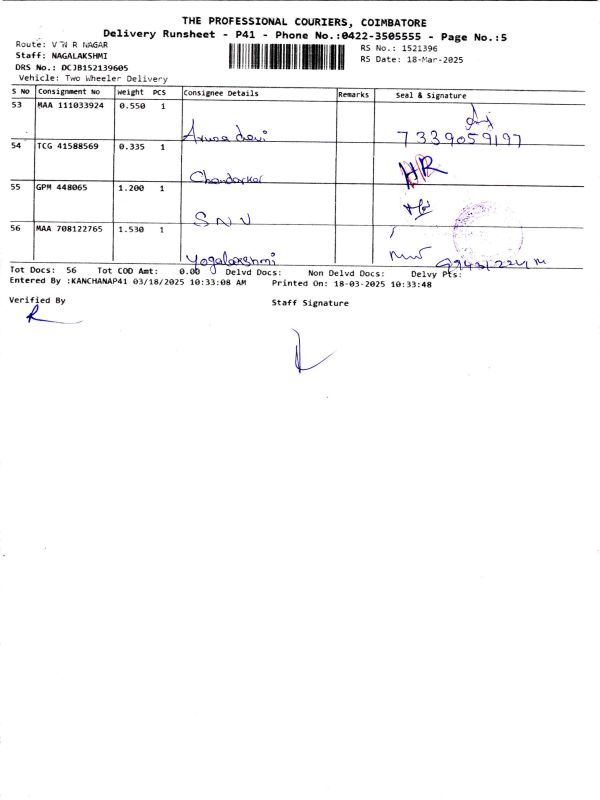 THE PROFESSIONAL COURIERS, COIMBATORE
Delivery Runsheet - P41 - Phone No.:0422-3505555 - Page No.:5
Route: V N R NAGAR
RS No.: 1521396
Staff: NAGALAKSHMI
RS Date: 18-Mar-2025
DRS No.: DCJB152139605
Vehicle: Two Wheeler Delivery
S No Consignment No Weight PCS Consignee Details Remarks Seal & Signature
53 MAA 111033924 0.550 1
Aruna devi 7339059197
54 TCG 41588569 0.335 1
HR
55 GPM 448065 1.200 1
S N V
56 MAA 708122765 1.530 1
Yogalakshmi
Tot Docs: 56 Tot COD Amt: 0.00 Delvd Docs: Non Delvd Docs: Delvy Pts:
Entered By :KANCHANAP41 03/18/2025 10:33:08 AM Printed On: 18-03-2025 10:33:48
Verified By Staff Signature